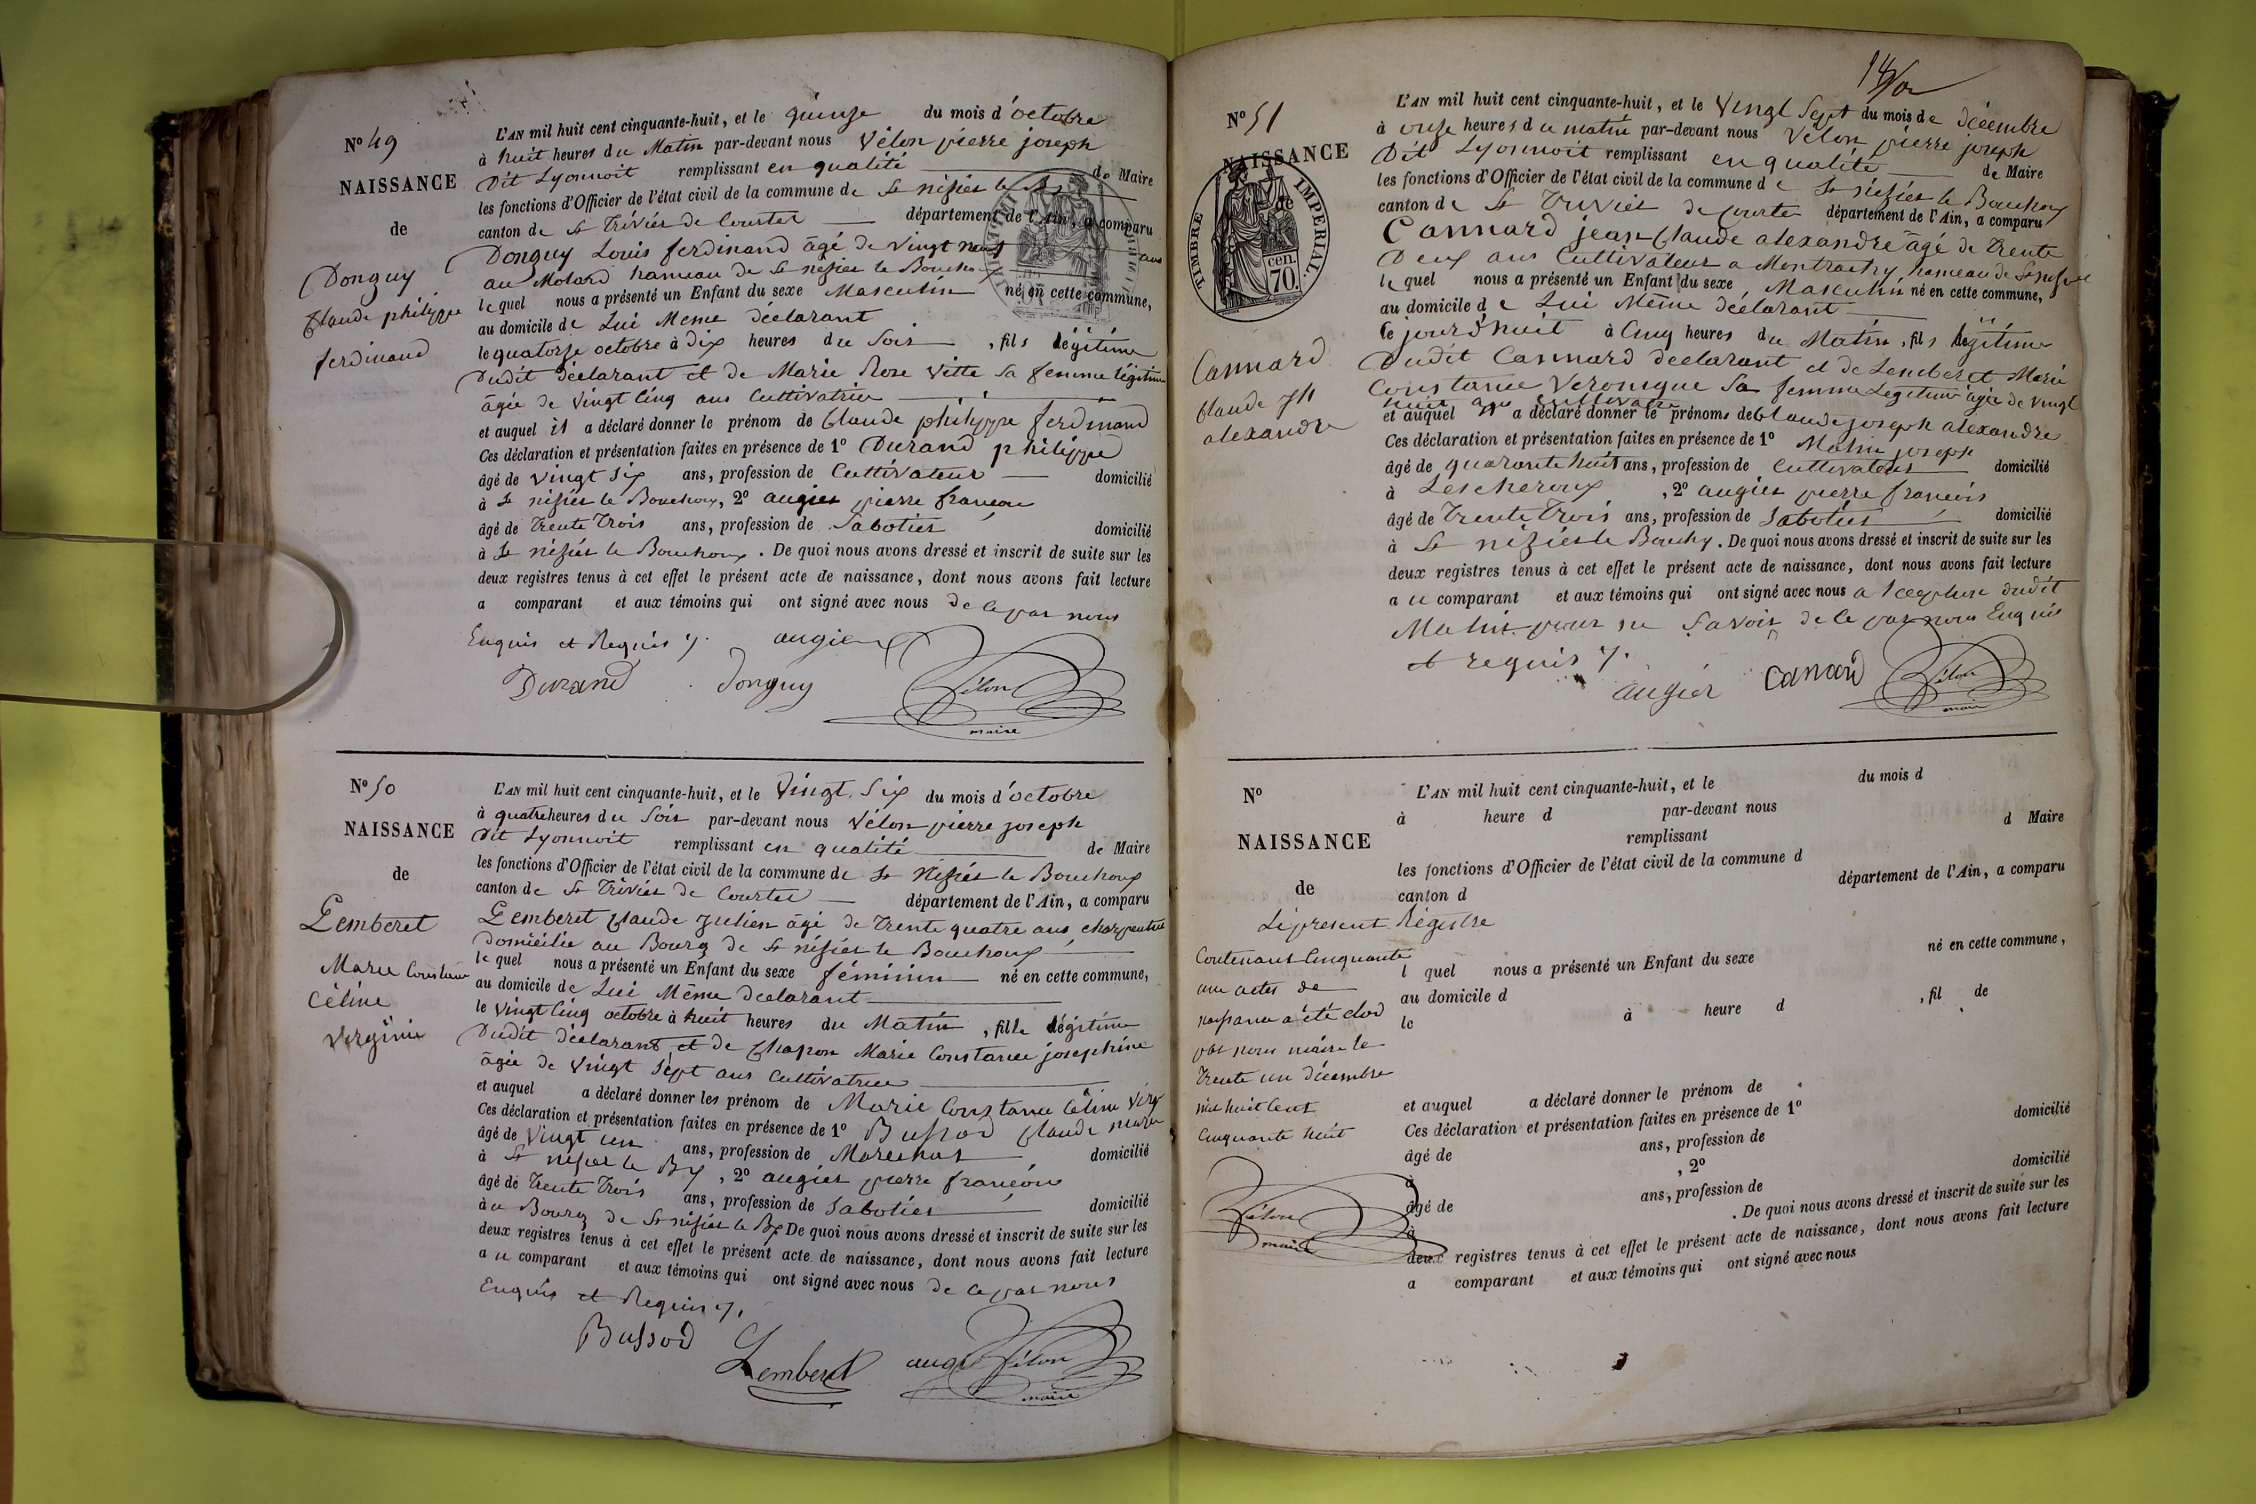 N° 49
NAISSANCE
de
Donguy
Claude philippe
ferdinand
L'AN mil huit cent cinquante-huit, et le quinze du mois d'octobre
à huit heures du Matin par-devant nous Vélon pierre joseph
Dit Lyonnoit remplissant en qualité de Maire
les fonctions d'Officier de l'état civil de la commune de St nisier le
canton de St Trivier de Courtes département de l'Ain, a comparu
Donguy Louis ferdinand âgé de Vingt neuf ans
au Molard hameau de St nisier le Bouchoux
lequel nous a présenté un Enfant du sexe Masculin né en cette commune,
au domicile de Lui Meme déclarant
le quatorze octobre à Dix heures du Soir, fils légitime
Dudit déclarant et de Marie Rose Vitte Sa femme légitime
âgée de Vingt Cinq ans Cultivatrice
et auquel il a déclaré donner le prénom de Claude philippe ferdinand
Ces déclaration et présentation faites en présence de 1° Durand philippe
âgé de Vingt Six ans, profession de Cultivateur domicilié
à St nisier le Bouchoux, 2° augier pierre françois
âgé de Trente Trois ans, profession de Sabotier domicilié
à St nisier le Bouchoux. De quoi nous avons dressé et inscrit de suite sur les
deux registres tenus à cet effet le présent acte de naissance, dont nous avons fait lecture
a comparant et aux témoins qui ont signé avec nous de ce par nous
Enquis et Requis
augier
Durand donguy Vélon
maire
N° 50
NAISSANCE
de
Lemberet
Marie Constance
Céline
Virginie
L'AN mil huit cent cinquante-huit, et le Vingt Six du mois d'octobre
à quatre heures du Soir par-devant nous Vélon pierre joseph
Dit Lyonnoit remplissant en qualité de Maire
les fonctions d'Officier de l'état civil de la commune de St Nisier le Bouchoux
canton de St Trivier de Courtes département de l'Ain, a comparu
Lemberet Claude Julien âgé de Trente quatre ans charpentier
Domicilié au Bourg de St nisier le Bouchoux
lequel nous a présenté un Enfant du sexe féminin né en cette commune,
au domicile de Lui Même déclarant
le Vingt Cinq octobre à huit heures du Matin, fille légitime
Dudit déclarant et de Chapon Marie Constance josephine
âgée de Vingt Sept ans Cultivatrice
et auquel a déclaré donner les prénom de Marie Constance Céline Virg
Ces déclaration et présentation faites en présence de 1° Bussod Claude marie
âgé de Vingt un ans, profession de Marechal domicilié
à St nisier le Bx, 2° augier pierre françois
âgé de Trente Trois ans, profession de Sabotier domicilié
à au Bourg de St nisier le Bx De quoi nous avons dressé et inscrit de suite sur les
deux registres tenus à cet effet le présent acte de naissance, dont nous avons fait lecture
au comparant et aux témoins qui ont signé avec nous de ce par nous
Enquis et Requis
Bussod
Lemberet augier Vélon
maire
N° 51
NAISSANCE
de
TIMBRE IMPERIAL.
70 cen.
Cannard
Claude Jh
alexandre
L'AN mil huit cent cinquante-huit, et le Vingt Sept du mois de décembre
à onze heures du matin par-devant nous Vélon pierre joseph
Dit Lyonnoit remplissant en qualité de Maire
les fonctions d'Officier de l'état civil de la commune de St nisier le Bouchoux
canton de St Trivier de Courtes département de l'Ain, a comparu
Cannard jean Claude alexandre âgé de Trente
Deux ans Cultivateur a hameau de St nisier
lequel nous a présenté un Enfant du sexe Masculin né en cette commune,
au domicile de Lui Même déclarant
le jourd'huit à Cinq heures du Matin, fils légitime
Dudit Cannard declarant et de Lemberet Marie
Constance Veronique Sa femme Légitime âgée de Vingt
huit ans Cultivatrice
et auquel a déclaré donner le prénoms de Claude joseph alexandre
Ces déclaration et présentation faites en présence de 1° Mathin joseph
âgé de quarante huit ans, profession de Cultivateur domicilié
à Lescheroux, 2° augier pierre françois
âgé de Trente Trois ans, profession de Sabotier domicilié
à St nizier le Bouchx. De quoi nous avons dressé et inscrit de suite sur les
deux registres tenus à cet effet le présent acte de naissance, dont nous avons fait lecture
au comparant et aux témoins qui ont signé avec nous a dudit
Mathin pour ne Savoir de ce par nous Enquis
et requis
augier Canard Vélon
maire
N°
NAISSANCE
de
L'AN mil huit cent cinquante-huit, et le du mois d
à heure d par-devant nous
remplissant d Maire
les fonctions d'Officier de l'état civil de la commune d
canton d département de l'Ain, a comparu
Le present Régistre
Contenant Cinquante
une actes de
naissance a été clod
par nous maire le
Trente un décembre
mil huit Cent
Cinquante huit
Vélon
maire
l quel nous a présenté un Enfant du sexe né en cette commune,
au domicile d
le à heure d, fil de
et auquel a déclaré donner le prénom de
Ces déclaration et présentation faites en présence de 1°
âgé de ans, profession de domicilié
à, 2°
âgé de ans, profession de domicilié
à. De quoi nous avons dressé et inscrit de suite sur les
deux registres tenus à cet effet le présent acte de naissance, dont nous avons fait lecture
a comparant et aux témoins qui ont signé avec nous